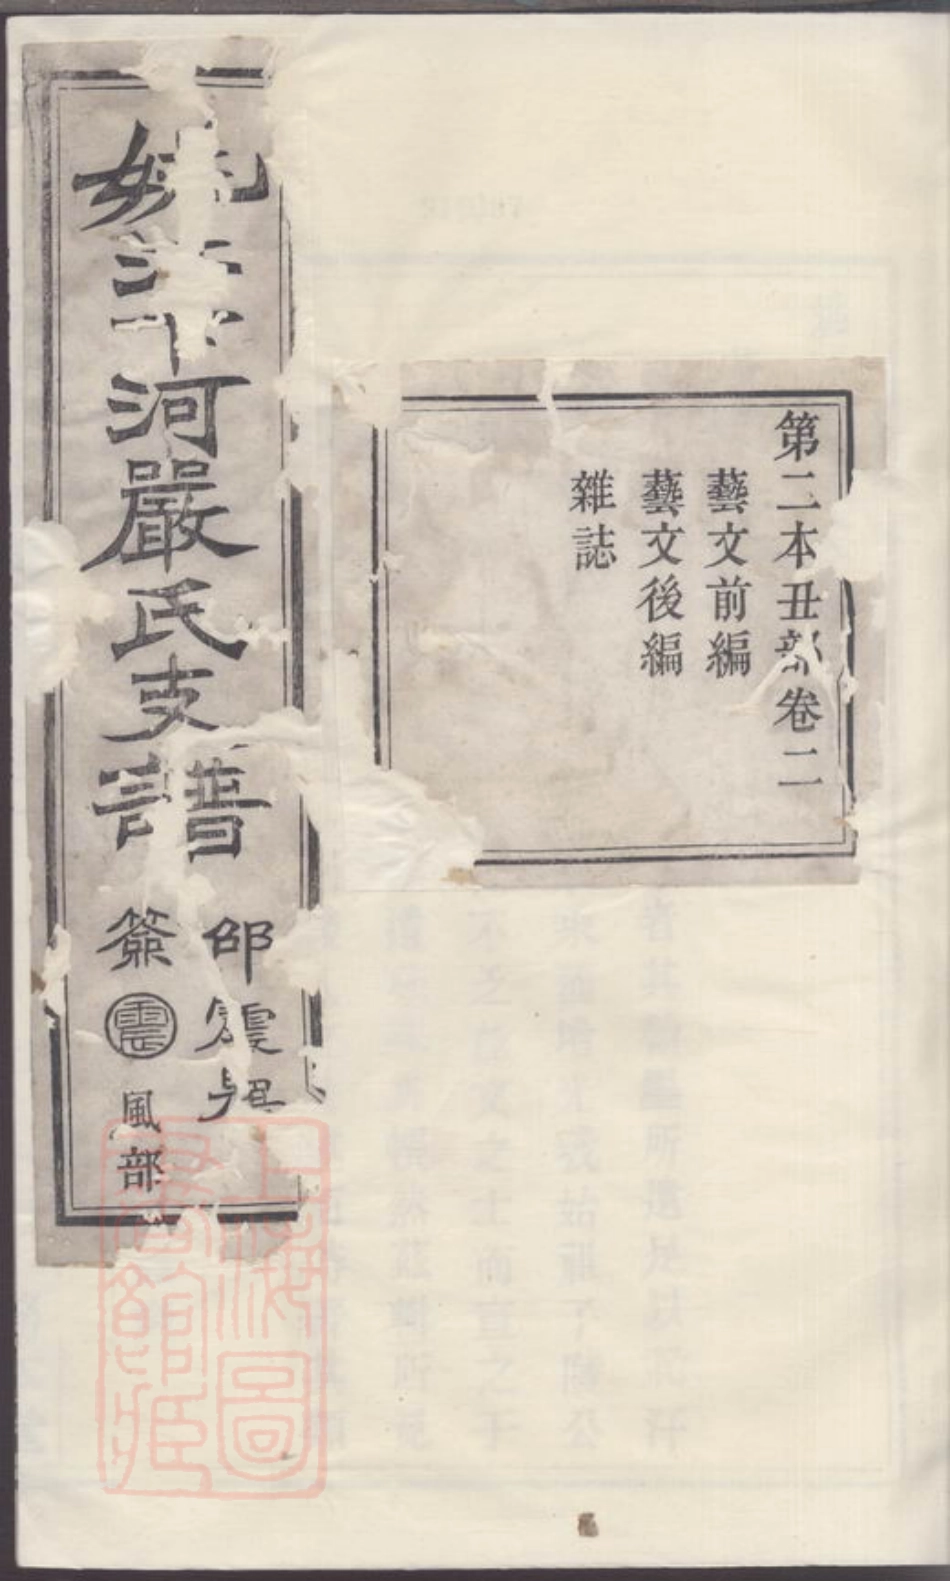 第二本丑部卷二
藝文前編
藝文後編
雜誌
姚江下河嚴氏支譜
邵震
簽
震
風部
上海圖
書館藏